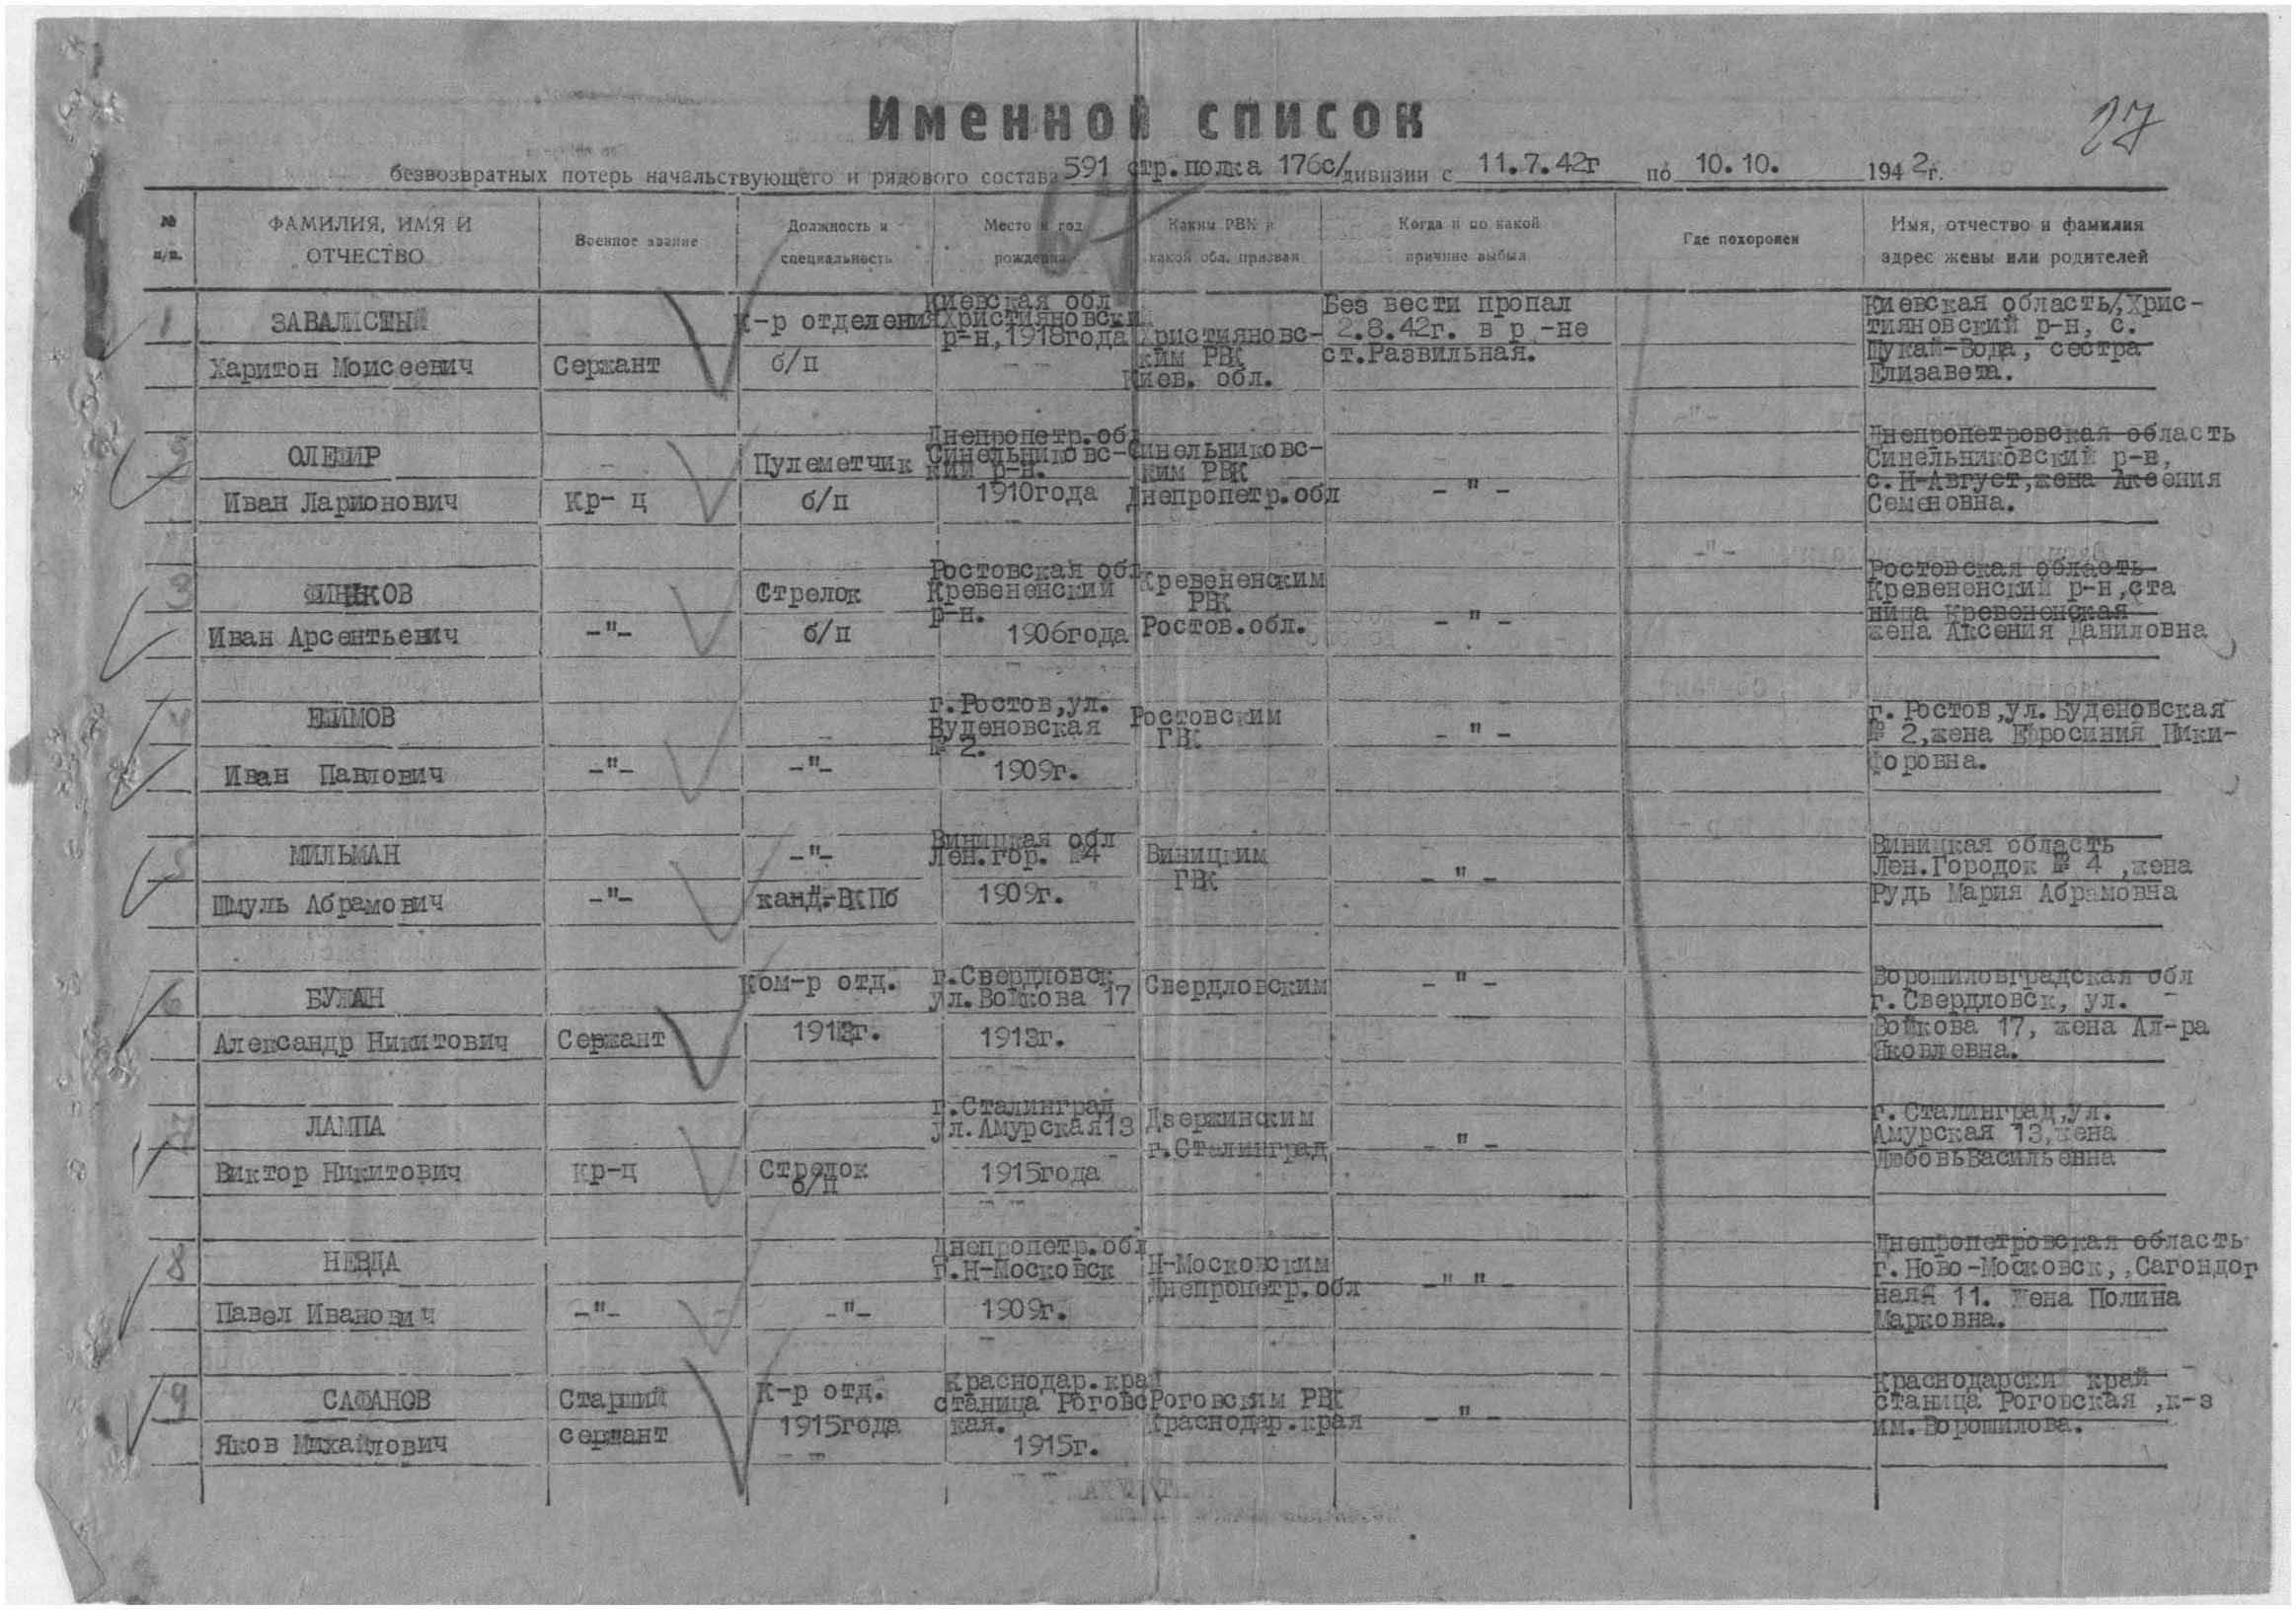 27
Именной список
безвозвратных потерь начальствующего и рядового состава 591 стр.полка 176с/дивизии с 11.7.42г по 10.10. 1942г.
№ п/п.
ФАМИЛИЯ, ИМЯ И ОТЧЕСТВО
Военное звание
Должность и специальность
Место и год рождения
Каким РВК и какой обл. призван
Когда и по какой причине выбыл
Где похоронен
Имя, отчество и фамилия адрес жены или родителей
1
ЗАВАЛИСТЫЙ
Харитон Моисеевич
Сержант
К-р отделения
б/п
Киевская обл
Християновский
р-н,1918года
Християновс-
ким РВК
Киев. обл.
Без вести пропал
2.8.42г. в р -не
ст.Развильная.
Киевская область/,Хрис-
тияновский р-н, с.
Шукай-Вода, сестра
Елизавета.
2
Иван Ларионович
Кр- ц
Пулеметчик
б/п
Днепропетр.обл
Синельниковс-
кий р-н.
1910года
Синельниковс-
ким РВК
Днепропетр.обл
- " -
Днепропетровская область
Синельниковский р-н,
с.Н-Август,жена Аксения
Семеновна.
3
Иван Арсентьевич
-"-
Стрелок
б/п
Ростовская обл
Кревененский
р-н.
1906года
Кревененским
РВК
Ростов.обл.
- " -
Ростовская область
Кревененский р-н,ста
ница Кревененская
жена Аксения Даниловна
4
Иван Павлович
-"-
-"-
г.Ростов,ул.
Буденовская
№ 2.
1909г.
Ростовским
ГВК
- " -
г. Ростов,ул.Буденовская
№ 2,жена Ефросиния Ники-
форовна.
5
МИЛЬМАН
Шмуль Абрамович
-"-
-"-
канд.-ВКПб
Виницкая обл
Лен.гор. №4
1909г.
Виницким
ГВК
- " -
Виницкая область
Лен.Городок № 4 ,жена
Рудь Мария Абрамовна
6
БУЖАН
Александр Никитович
Сержант
Ком-р отд.
1913г.
г.Свердловск
ул.Войкова 17
1913г.
Свердловским
- " -
Ворошиловградская обл
г.Свердловск, ул.
Войкова 17, жена Ал-ра
Яковлевна.
7
ЛАМПА
Виктор Никитович
Кр-ц
Стрелок
б/п
г.Сталинград
ул.Амурская13
1915года
Дзержинским
г.Сталинград
- " -
г. Сталинград,ул.
Амурская 13,жена
ЛюбовьВасильевна
8
НЕВДА
Павел Иванович
-"-
-"-
Днепропетр.обл
г.Н-Московск
1909г.
Н-Московским
Днепропетр.обл
-" " -
Днепропетровская область
г.Ново-Московск,,Сагондог
ная 11. жена Полина
Марковна.
9
САФАНОВ
Яков Михайлович
Старший
сержант
К-р отд.
1915года
Краснодар.край
станица Роговс
кая.
1915г.
Роговским РВК
Краснодар.края
- " -
Краснодарский край
станица Роговская ,к-з
им.Ворошилова.